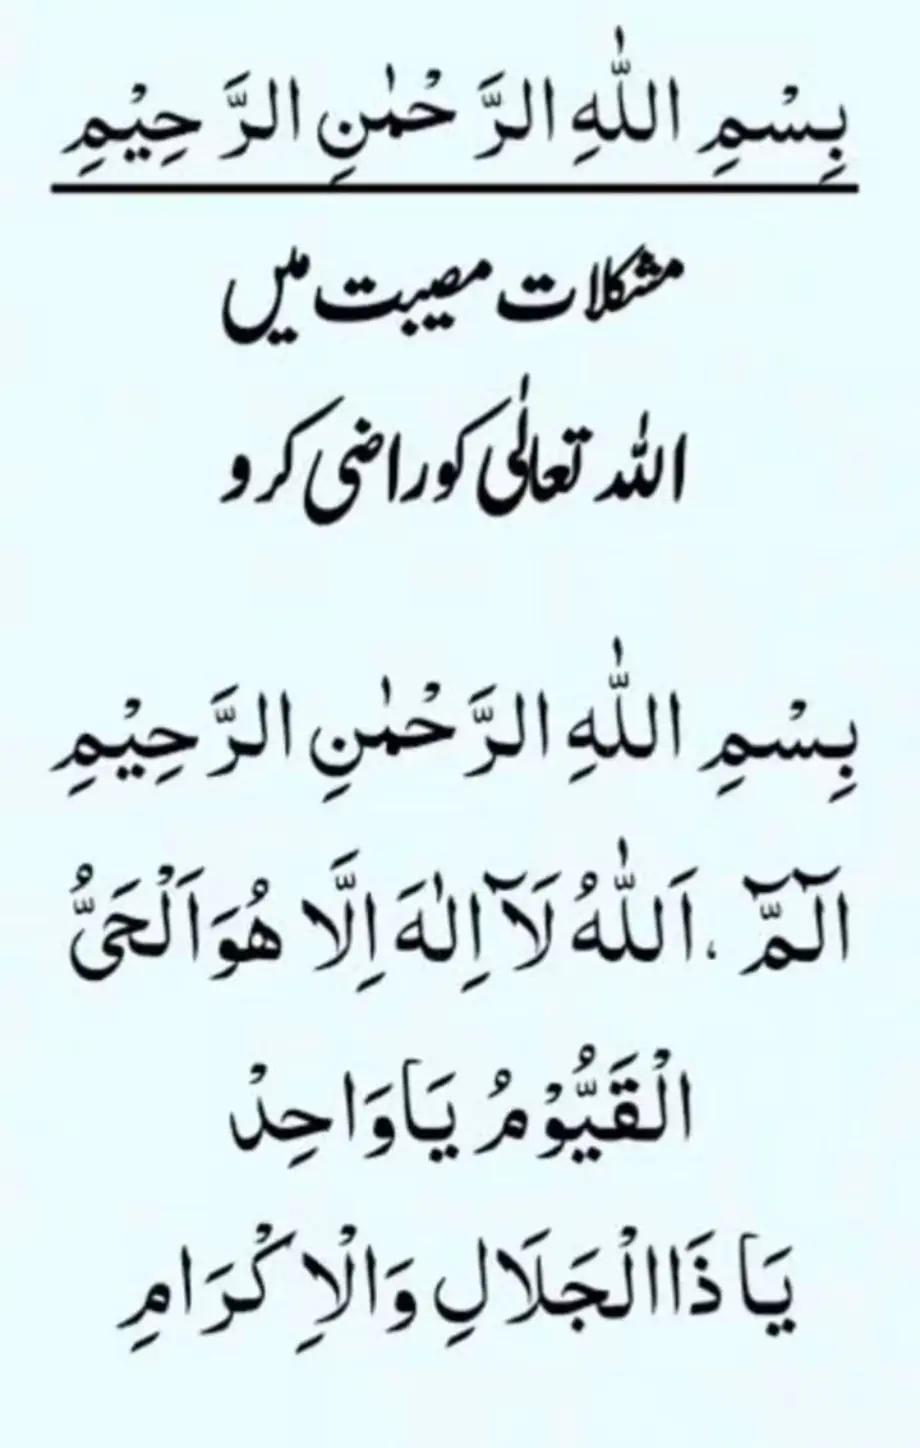 بِسْمِ اللّٰهِ الرَّحْمٰنِ الرَّحِيْمِ
مشکلات مصیبت میں
اللہ تعالٰی کو راضی کرو
بِسْمِ اللّٰهِ الرَّحْمٰنِ الرَّحِيْمِ
الٓمّٓ ، اَللّٰهُ لَآ اِلٰهَ اِلَّا هُوَ اَلْحَيُّ
الْقَيُّوْمُ يَا وَاحِدْ
يَا ذَا الْجَلَالِ وَالْاِكْرَامِ